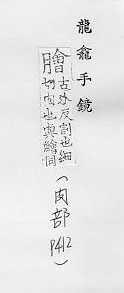 龍龕手鏡
膾古外反割也細
切肉也與繪同
(肉部
P412)